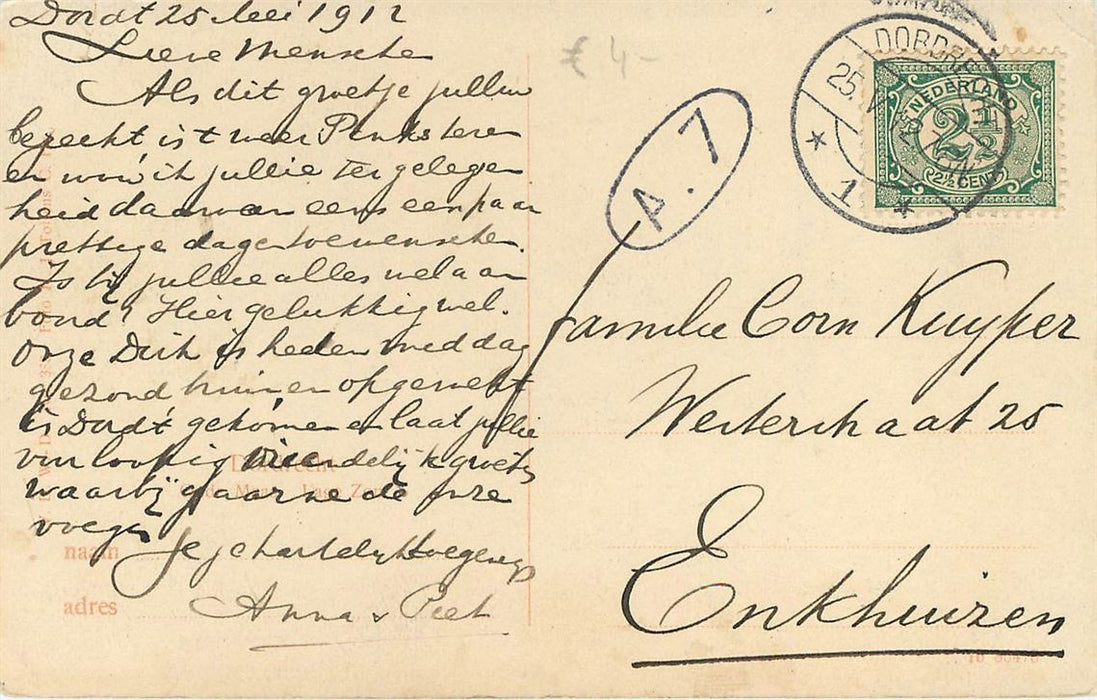 Dordt 25 Mei 1912
Lieve Mensche
Als dit groetje jullie
bereikt is 't weer Pinksteren
en wou ik jullie ter gelegen
heid daarvan eens een paar
prettige dage toewensche.
Is bij jullie alles wel aan
bond? Hier gelukkig wel.
Onze Dirk is heden middag
gezond en opgewekt
in Dordt gekomen en laat jullie
voorloopig vriendelijk groete
waarbij gaarne de onze
voege
Je, hartelijk toegenege
Anna & Piet
naam
adres
€ 4-
A. 7
DORDRE
25. V
1
NEDERLAND
2½
2½ CENT
Familie Corn Kuyper
Westerstraat 25
Enkhuizen